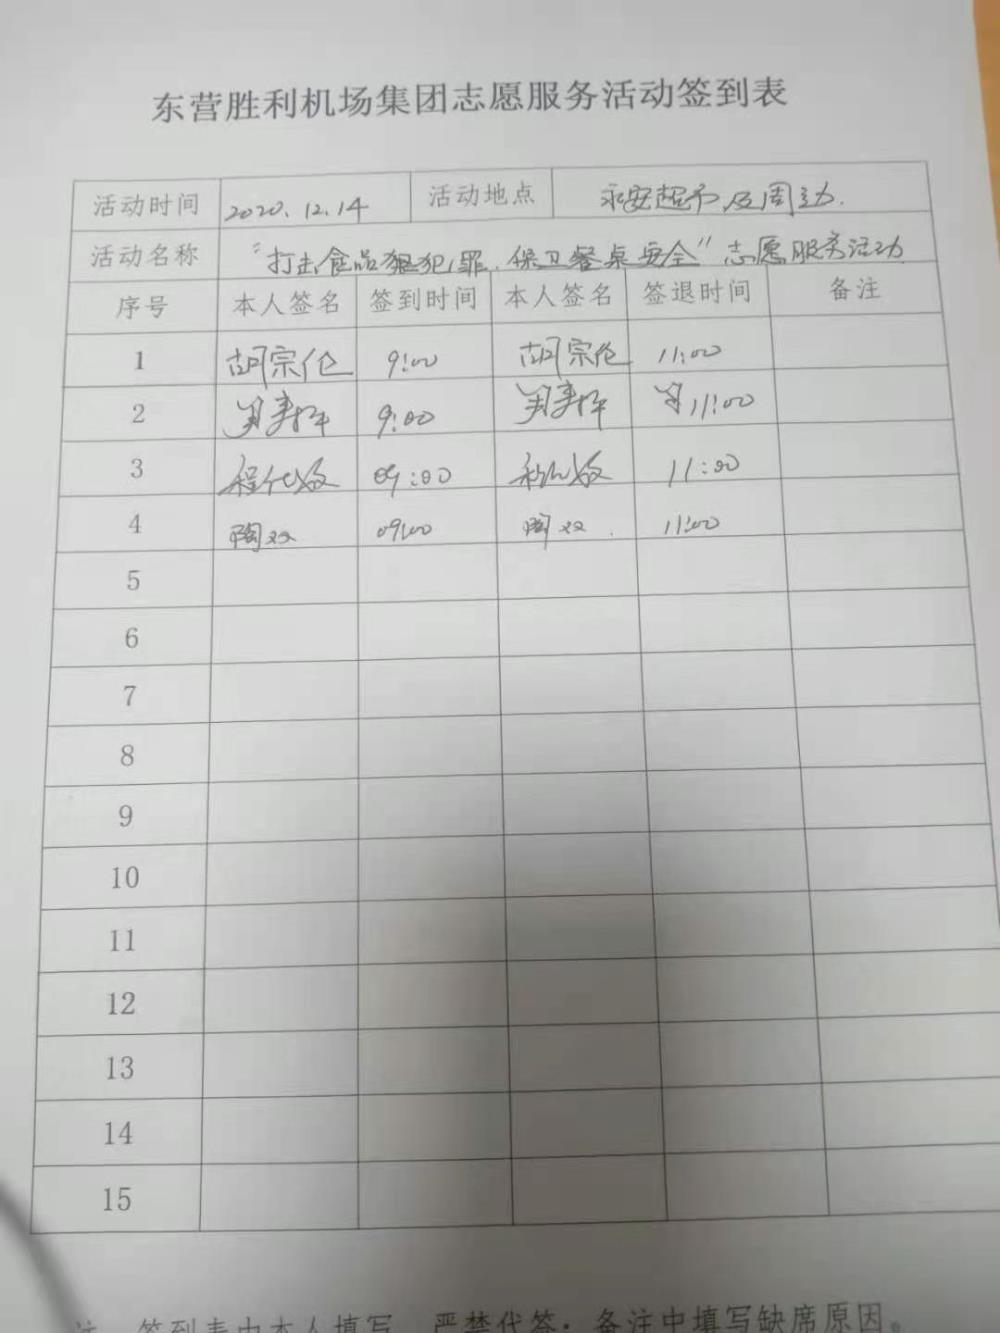 东营胜利机场集团志愿服务活动签到表
活动时间 2020.12.14 活动地点 永安超市及周边.
活动名称 "打击食品犯罪.保卫餐桌安全"志愿服务活动
序号 本人签名 签到时间 本人签名 签退时间 备注
1 胡宗伦 9:00 胡宗伦 11:00
2 9:00 11:00
3 程代 09:00 11:00
4 陶双 09:00 陶双 11:00
5
6
7
8
9
10
11
12
13
14
15
注 签到表由本人填写 严禁代签·备注中填写缺席原因。